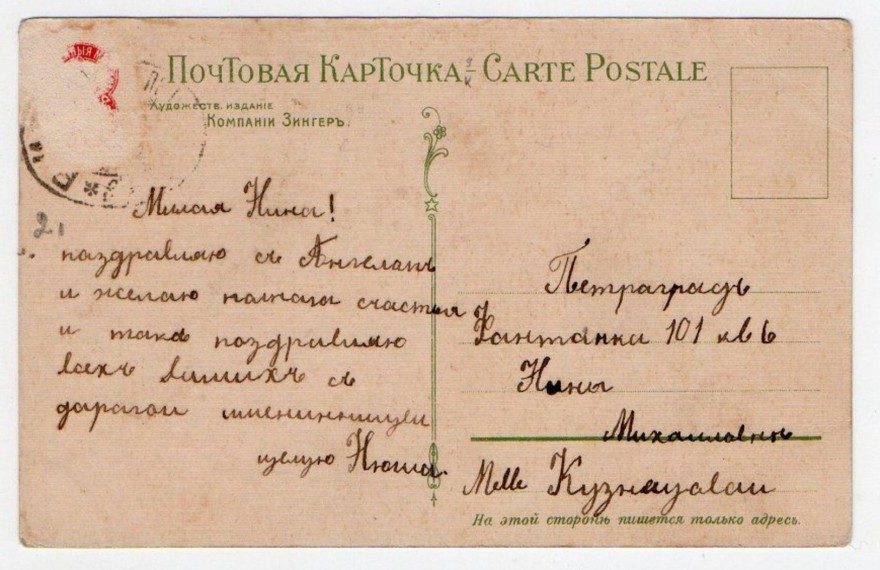 Почтовая Карточка. — Carte Postale
Художеств. издание
Компаніи Зингеръ.
Милая Нина!
паздравляю съ Ангелапъ
и желаю полнага счастья
и така поздравляю
всехъ вашихъ съ
дарагои именинницеи
целую Нюша.
Петраградъ
Фантанка 101 кв 6
Нины
Михаиловне
Melle Кузнецаваи
На этой сторонѣ пишется только адресъ.